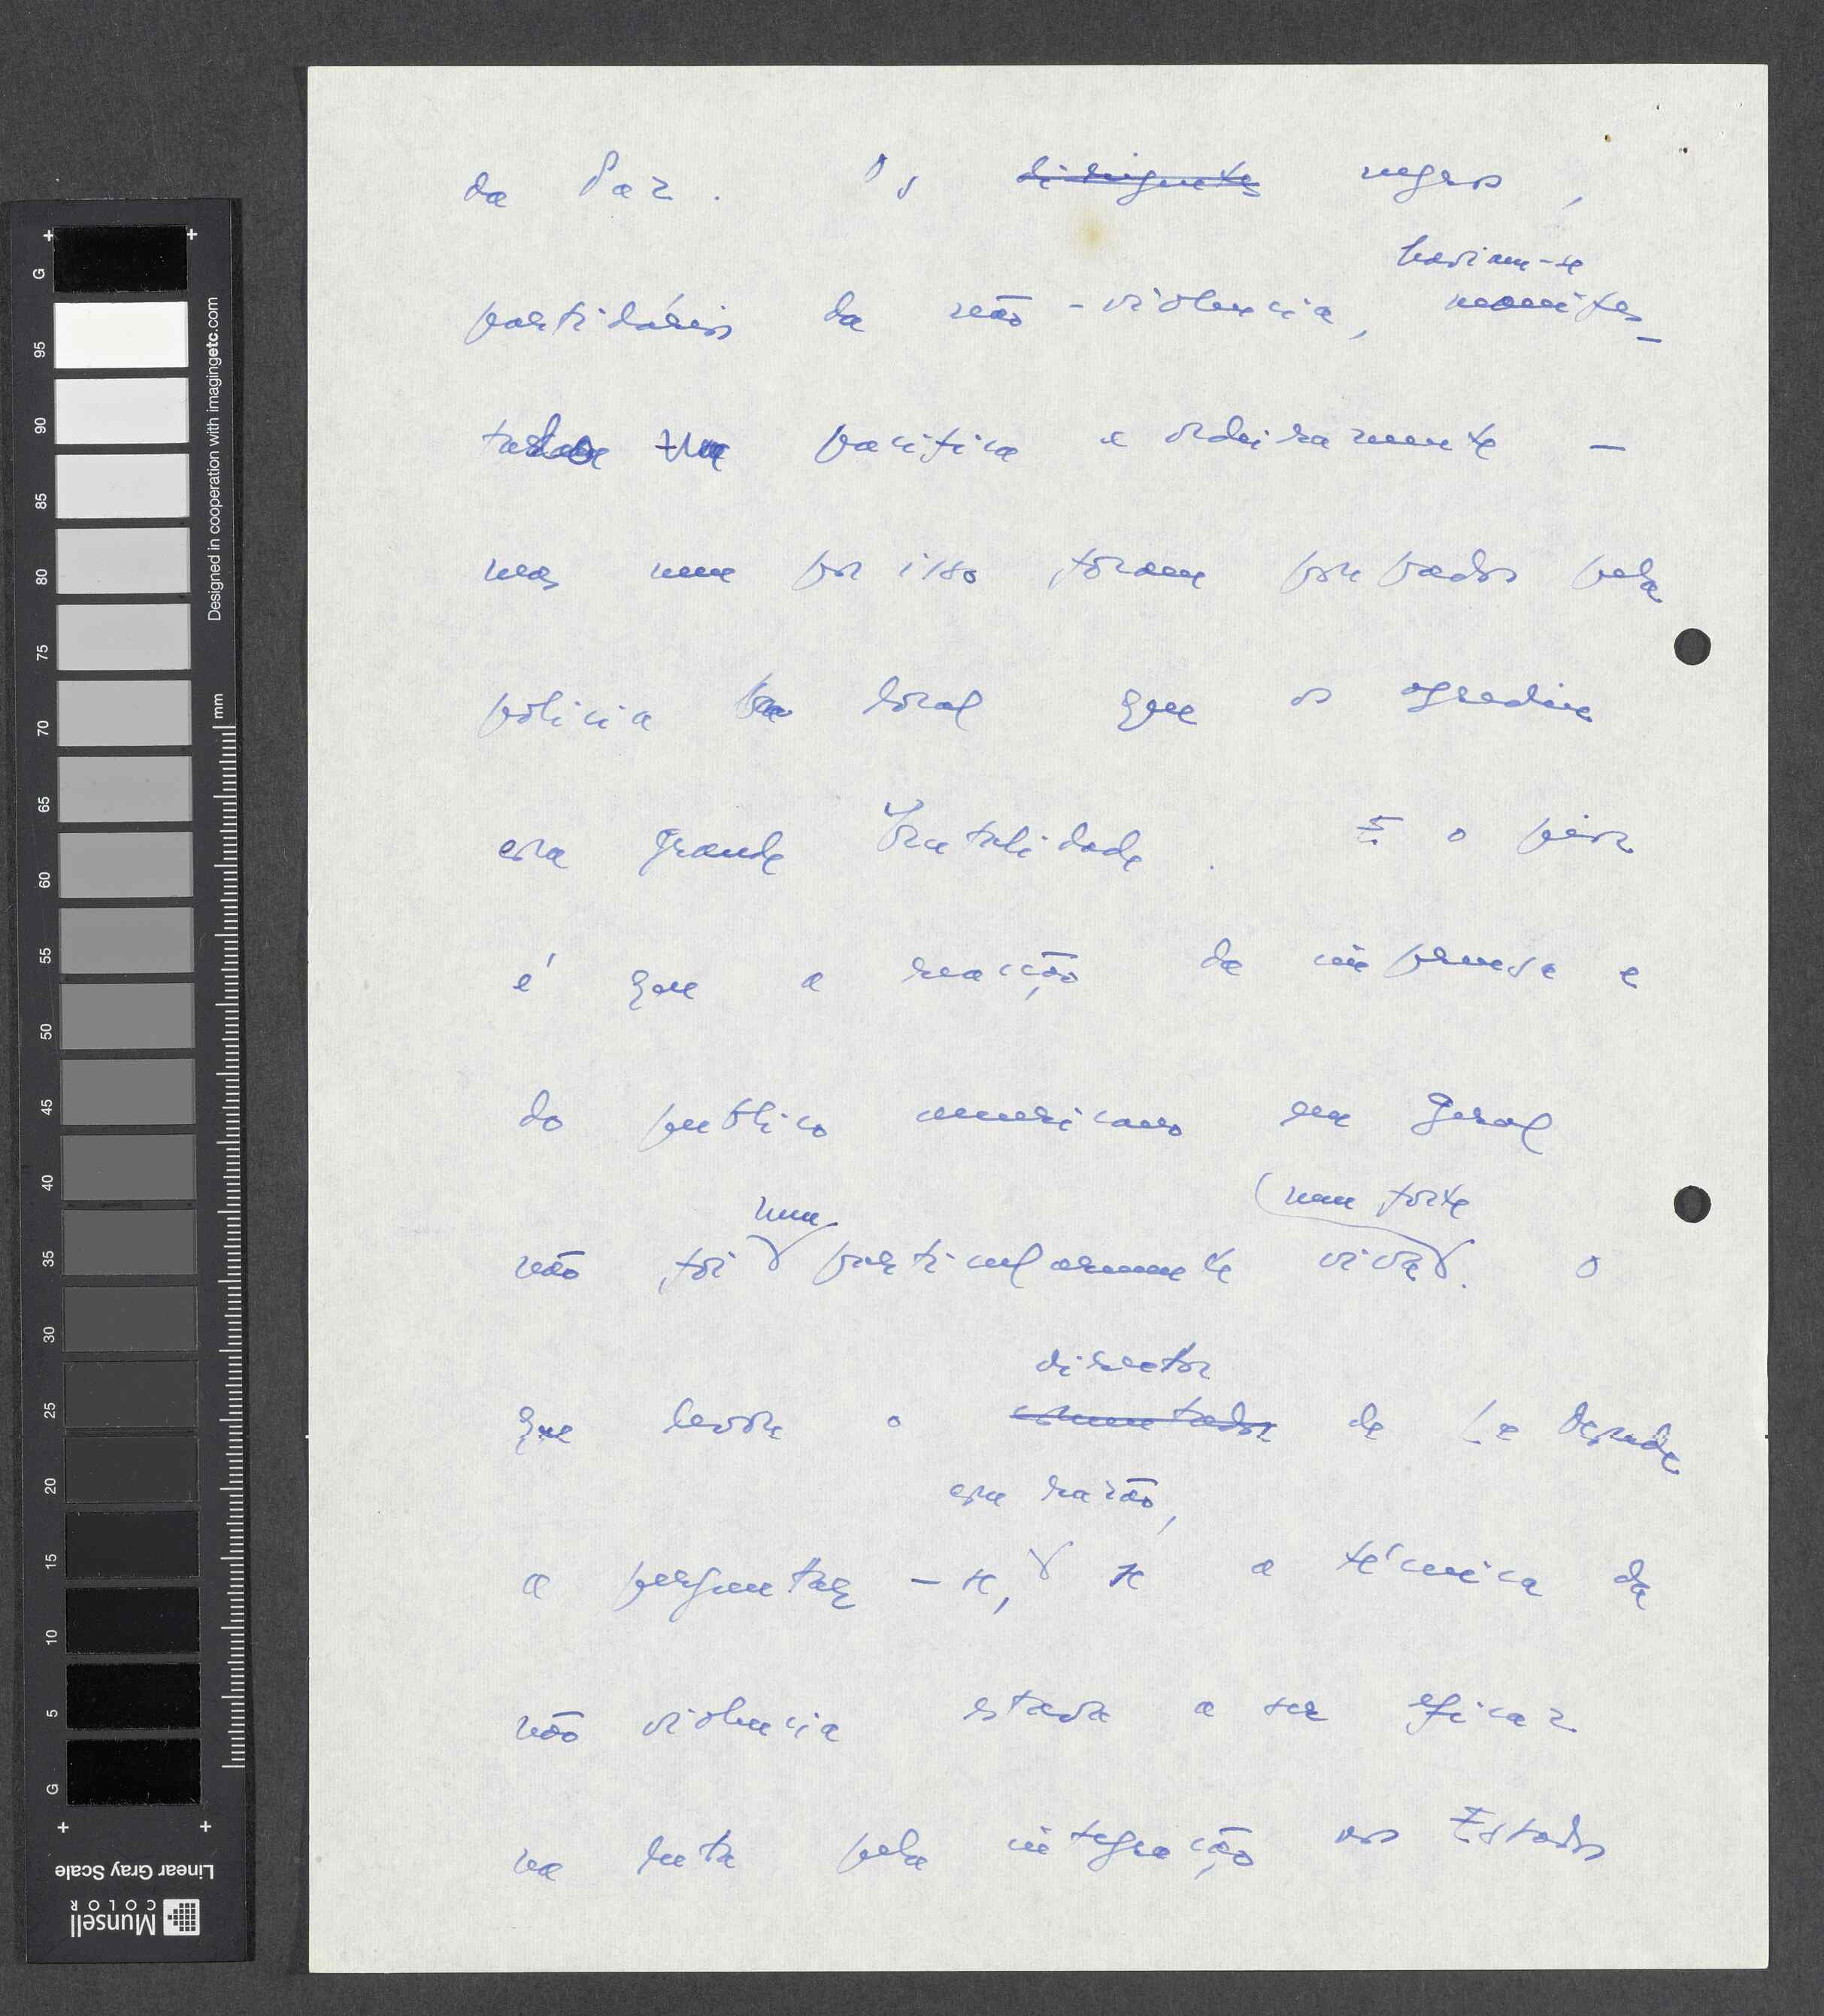 da Paz. Os dirigentes negros,
haviam-se
partidários da não-violencia, manifes-
tado pacifica e ordeiramente -
mas nem por isso foram poupados pela
policia local que os agrediu
com grande brutalidade. E o pior
é que a reacção da imprensa e
do publico americano em geral
nem (nem forte
não foi particularmente viva. O
director
que levou o comentador de Le Degrade
com razão,
a perguntar-se, se a técnica da
não violencia estava a ser eficaz
na luta pela integração nos Estados
G
95
90
85
80
75
70
65
60
55
50
45
40
35
30
25
20
15
10
5
G
mm
Designed in cooperation with imagingetc.com
Linear Gray Scale
Munsell
COLOR